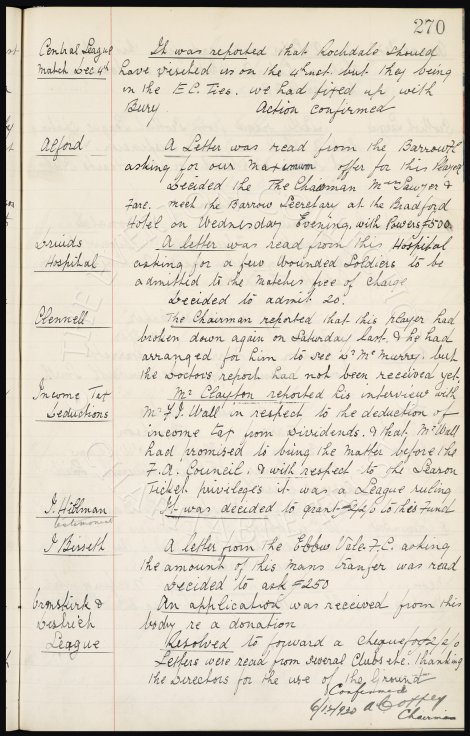 270
Central League
Match Dec 4th
It was reported that Rochdale should
have visited us on the 4th inst. but they being
in the E.C. Ties. we had fixed up with
Bury Action confirmed
Alford
A Letter was read from the Barrow F.C
asking for our Maximum offer for this Player
Decided the The Chairman Mess Sawyer &
Fare. meet the Barrow Secretary at the Bradford
Hotel on Wednesday Evening, with Powers £500.
Druids
Hospital
A letter was read from this Hospital
asking for a few wounded Soldiers to be
admitted to the Matches free of charge
Decided to admit 20.
Clennell
The Chairman reported that this player had
broken down again on Saturday last. & he had
arranged for him to see Dr McMurray. but
the Doctors report had not been received yet.
Income Tax
Deductions
Mr Clayton reported his interview with
Mr F. J. Wall in respect to the deduction of
income tax from Dividends. & that Mr Wall
had promised to bring the Matter before the
F.A. Council. & with respect to the Season
Ticket privileges it was a League ruling
J. Hillman
It was decided to grant £2/2/0 to this Fund
J Bisseth
A letter from the Ebbw Vale F.C. asking
the amount of this mans tranfer was read
Decided to ask £250
Ormskirk &
District
League
An application was received from this
body re a donation
Resolved to forward a cheque for
Letters were read from several Clubs etc. thanking
the Directors for the use of the Ground
Confirmed
6/12/920 A Coffey
Chairman